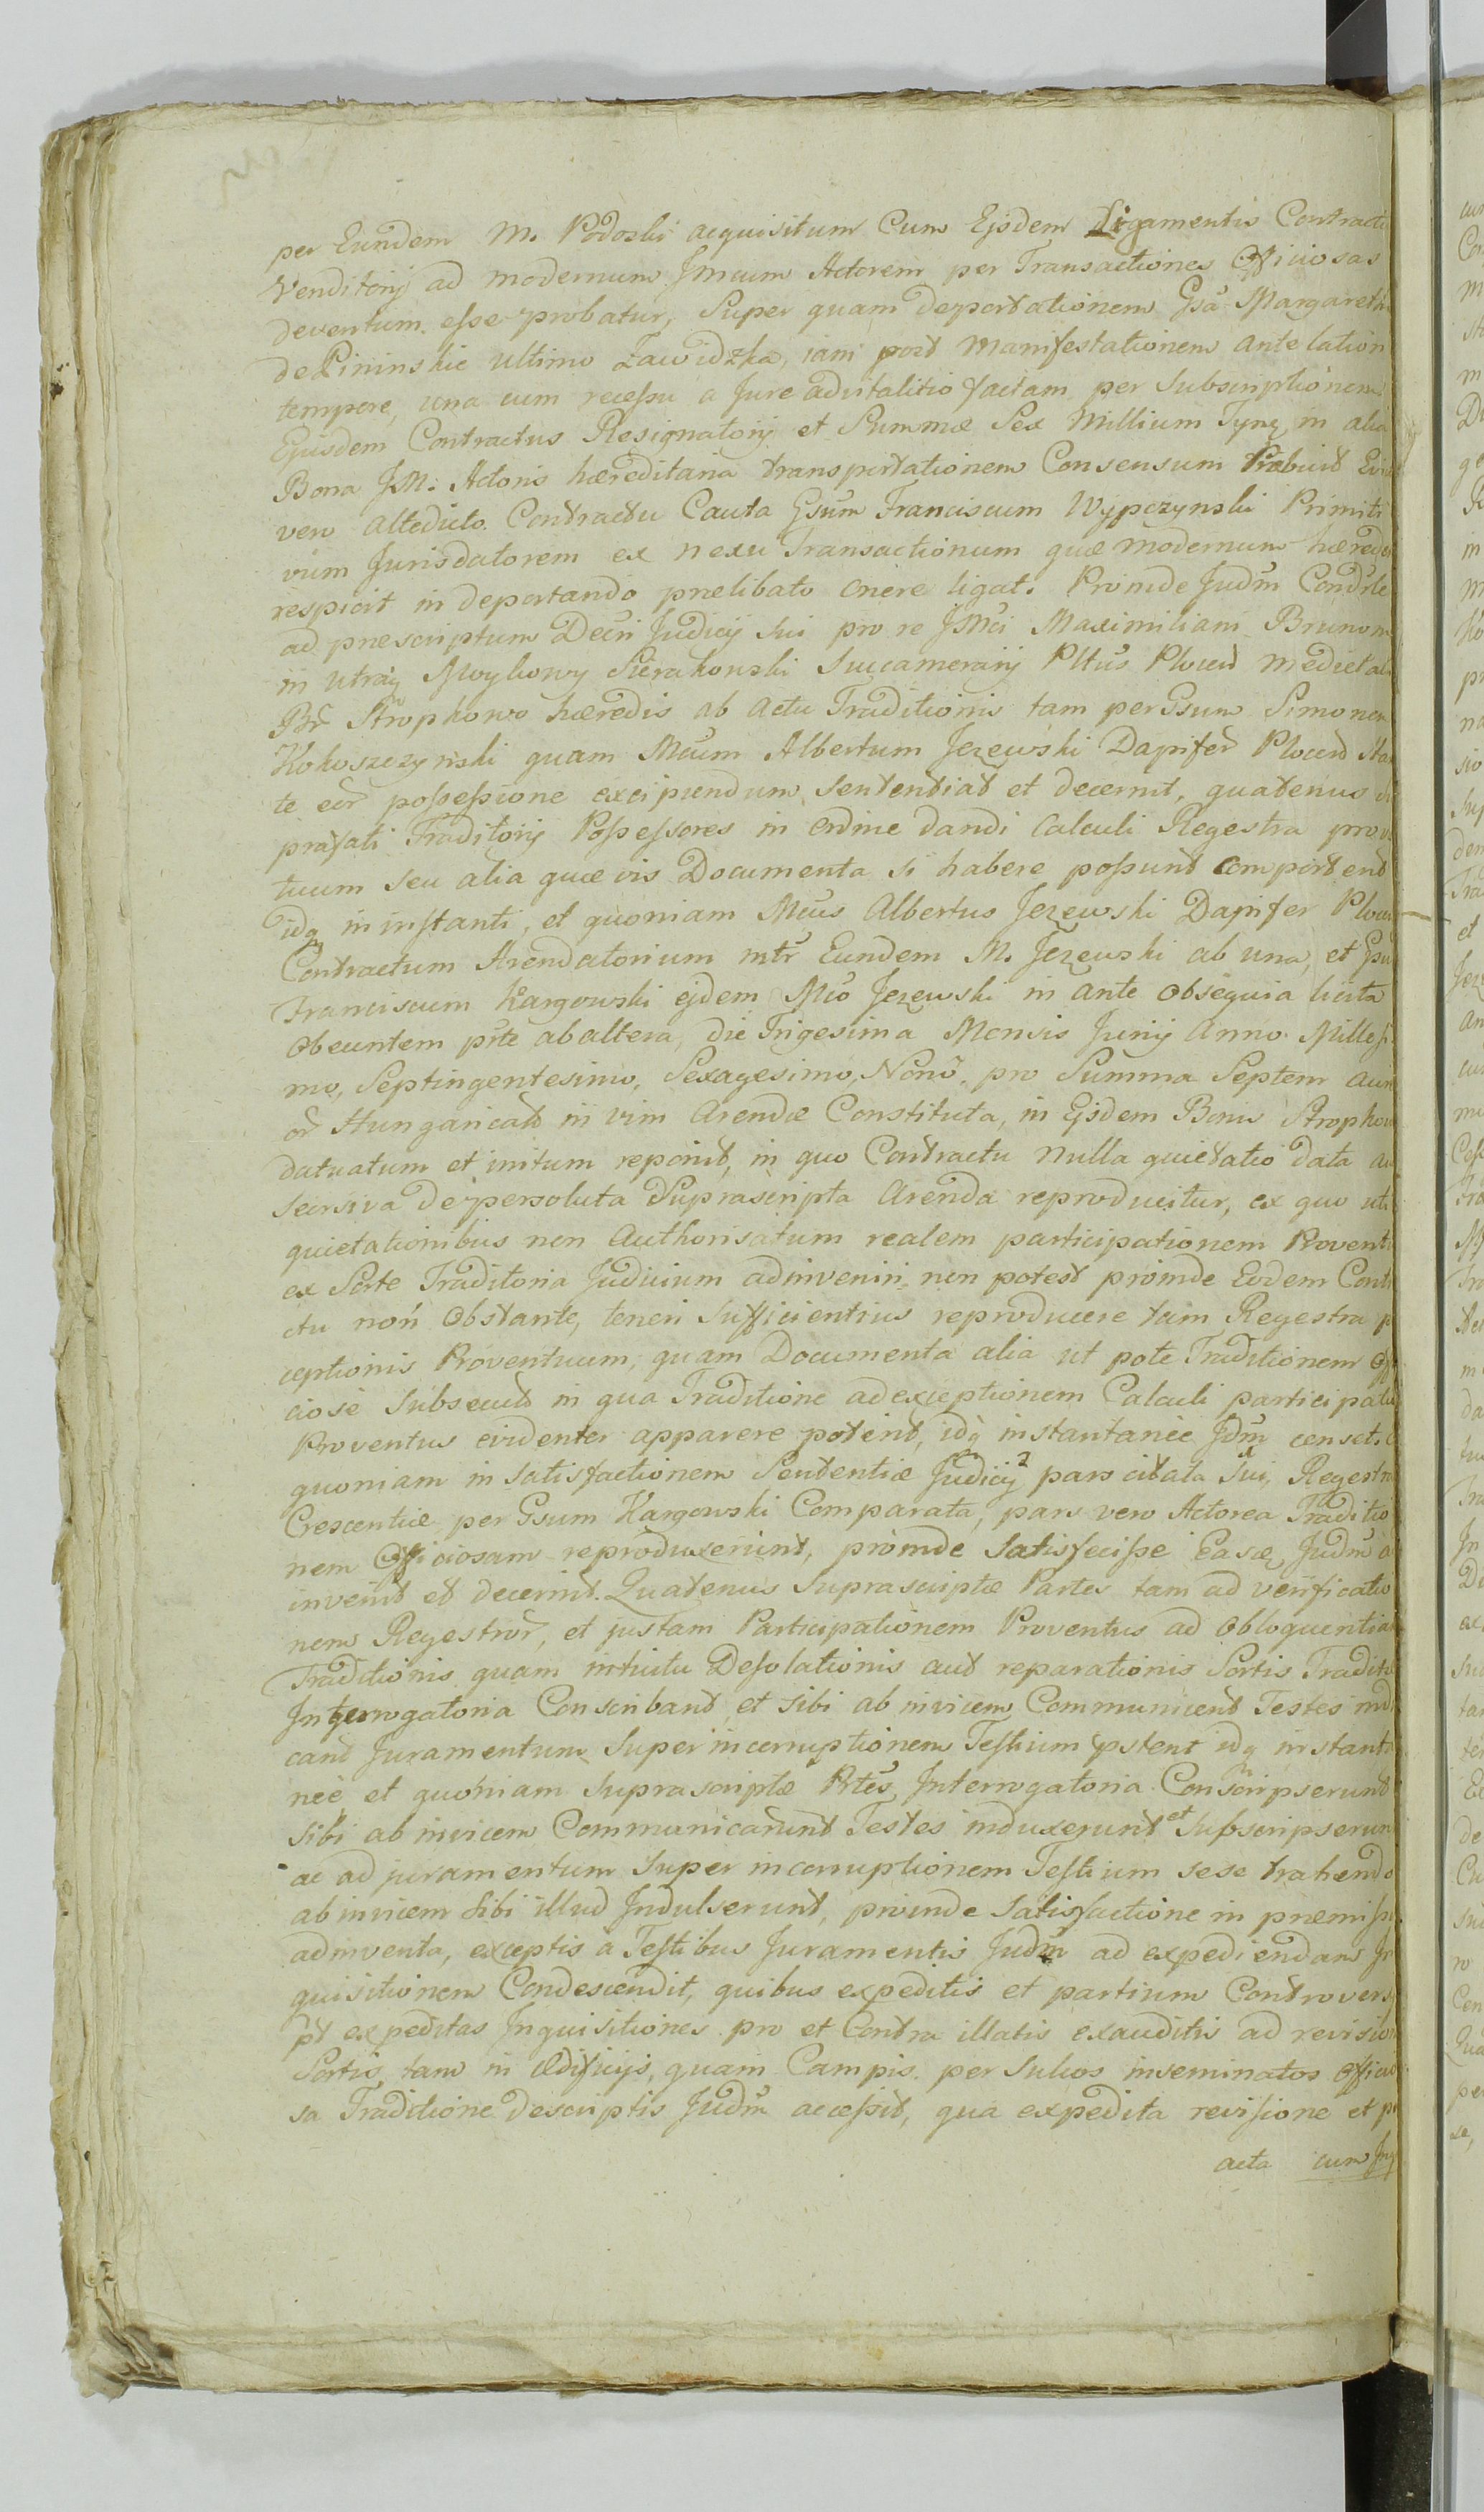 per Eundem M. Podoski acquisitum Cum Ejsdem Ligamentis Contractu
Venditorij ad modernum JMcum Actorem per Transactiones Officiosas
deventum esse probatur, Super quam deportationem Gsa Margaretha
de Pininskie ultimo Zawidzka, iam post Manifestationem ante lation
tempore, una cum recessu a Jure advitalitio factam per Subscriptionem
Ejusdem Contractus Resignatorij et Summæ Sex Millium Tynq in alia
Bona JM: Actoris hæreditaria transportationem Consensum Præbuit
vero altedicto Contractu Cauta Gsum Franciscum Wypczynski Primiti
vum Jurisdatorem ex nexu Transactionum quæ modernum hæredem
respicit in deportando prælibato onere ligat. Proinde Judm Condrle
ad præscriptum Decri Judicij sui pro re JMci Maximiliani Brunonis
in utráq Moykowy Sierakowski Succamerarij Pltus Plocen medietatis
Br Strophowo hæredis ab actu Traditionis tam per Gsum Simonem
Kokoszczynski quam Mcum Albertum Jezewski Dapifer Plocen Stan
te eor possessione excipiendum, sententiat et decernit, quatenus
præfati Traditorij Possessores in ordine dandi Calculi Regestra proven
tuum seu alia quævis Documenta si habere possunt comportent
idq in instanti, et quoniam Mcus Albertus Jezewski Dapifer Plocen
Contractum Arendatorium intr Eundem M. Jezewski ab una, et Gsu
Franciscum Kargowski ejdem Mco Jezewski in ante obsequia licita
Obeuntem prte ab altera, die Trigesima Mensis Junij Anno Millesi
mo, Septingentesimo, Sexagesimo, Nono, pro Summa Septem aure
or Hungarical in vim Arendæ Constituta, in Ejsdem Bonis Strophow
datuatum et initum reponit, in quo Contractu nulla quietatio data au
secusiva de persoluta Suprascripta Arenda reproducitur, ex quo uti
quietationibus non Authorisatum realem participationem Proventu
ex Sorte Traditoria Judicium adinvenire non potest proinde Eodem Contra
ctu non Obstante, teneri Sufficientius reproducere tam Regestra p
ceptionis Proventuum, quam Documenta alia ut pote Traditionem Offi
ciosè subsecutã in qua Traditione ad exceptionem Calculi participatus
Proventus evidenter apparere poterit, idq instantaneè Jdm censet.
quoniam in satisfactionem Sententiæ Judicij pars citata Sui, Regestra
Crescentiæ per Gsum Kargowski Comparata, pars vero Actorea Traditio
nem Officiosam reproduxerunt, proinde Satisfecisse Easq Judm a
invenit et decernit. Quatenus Suprascriptæ Partes tam ad verificatio
nem Regestror, et justam Participationem Proventus ad obloquentiam
Traditionis quam intuitu Desolationis aut reparationis Sortis Tradito
Interrogatoria Conscribant et sibi ab invicem Communicent Testes indu
cant Juramentum Super incorruptionem Testium pstent idq instanta
neè, et quoniam Suprascriptæ Prtes Interrogatoria Conscripserunt
Sibi ab invicem Communicarunt Testes induxerunt et Subscripserun
ac ad juramentum Super incorruptionem Testium sese trahendo
ab invicem Sibi illud Indulserunt, proinde Satisfactione in præmissis
adinventa, exceptis a Testibus Juramentis Judm ad expediendam In
quisitionem Condescendit, quibus expeditis et partium Controversijs
pt expeditas Inquisitiones pro et Contra illatis exauditis ad revision
Sortis, tam in Ædificijs, quam Campis per Sulcos inseminatos officio
sa Traditione descriptis Judm accessit, qua expedita revisione et p
acta cum Inq